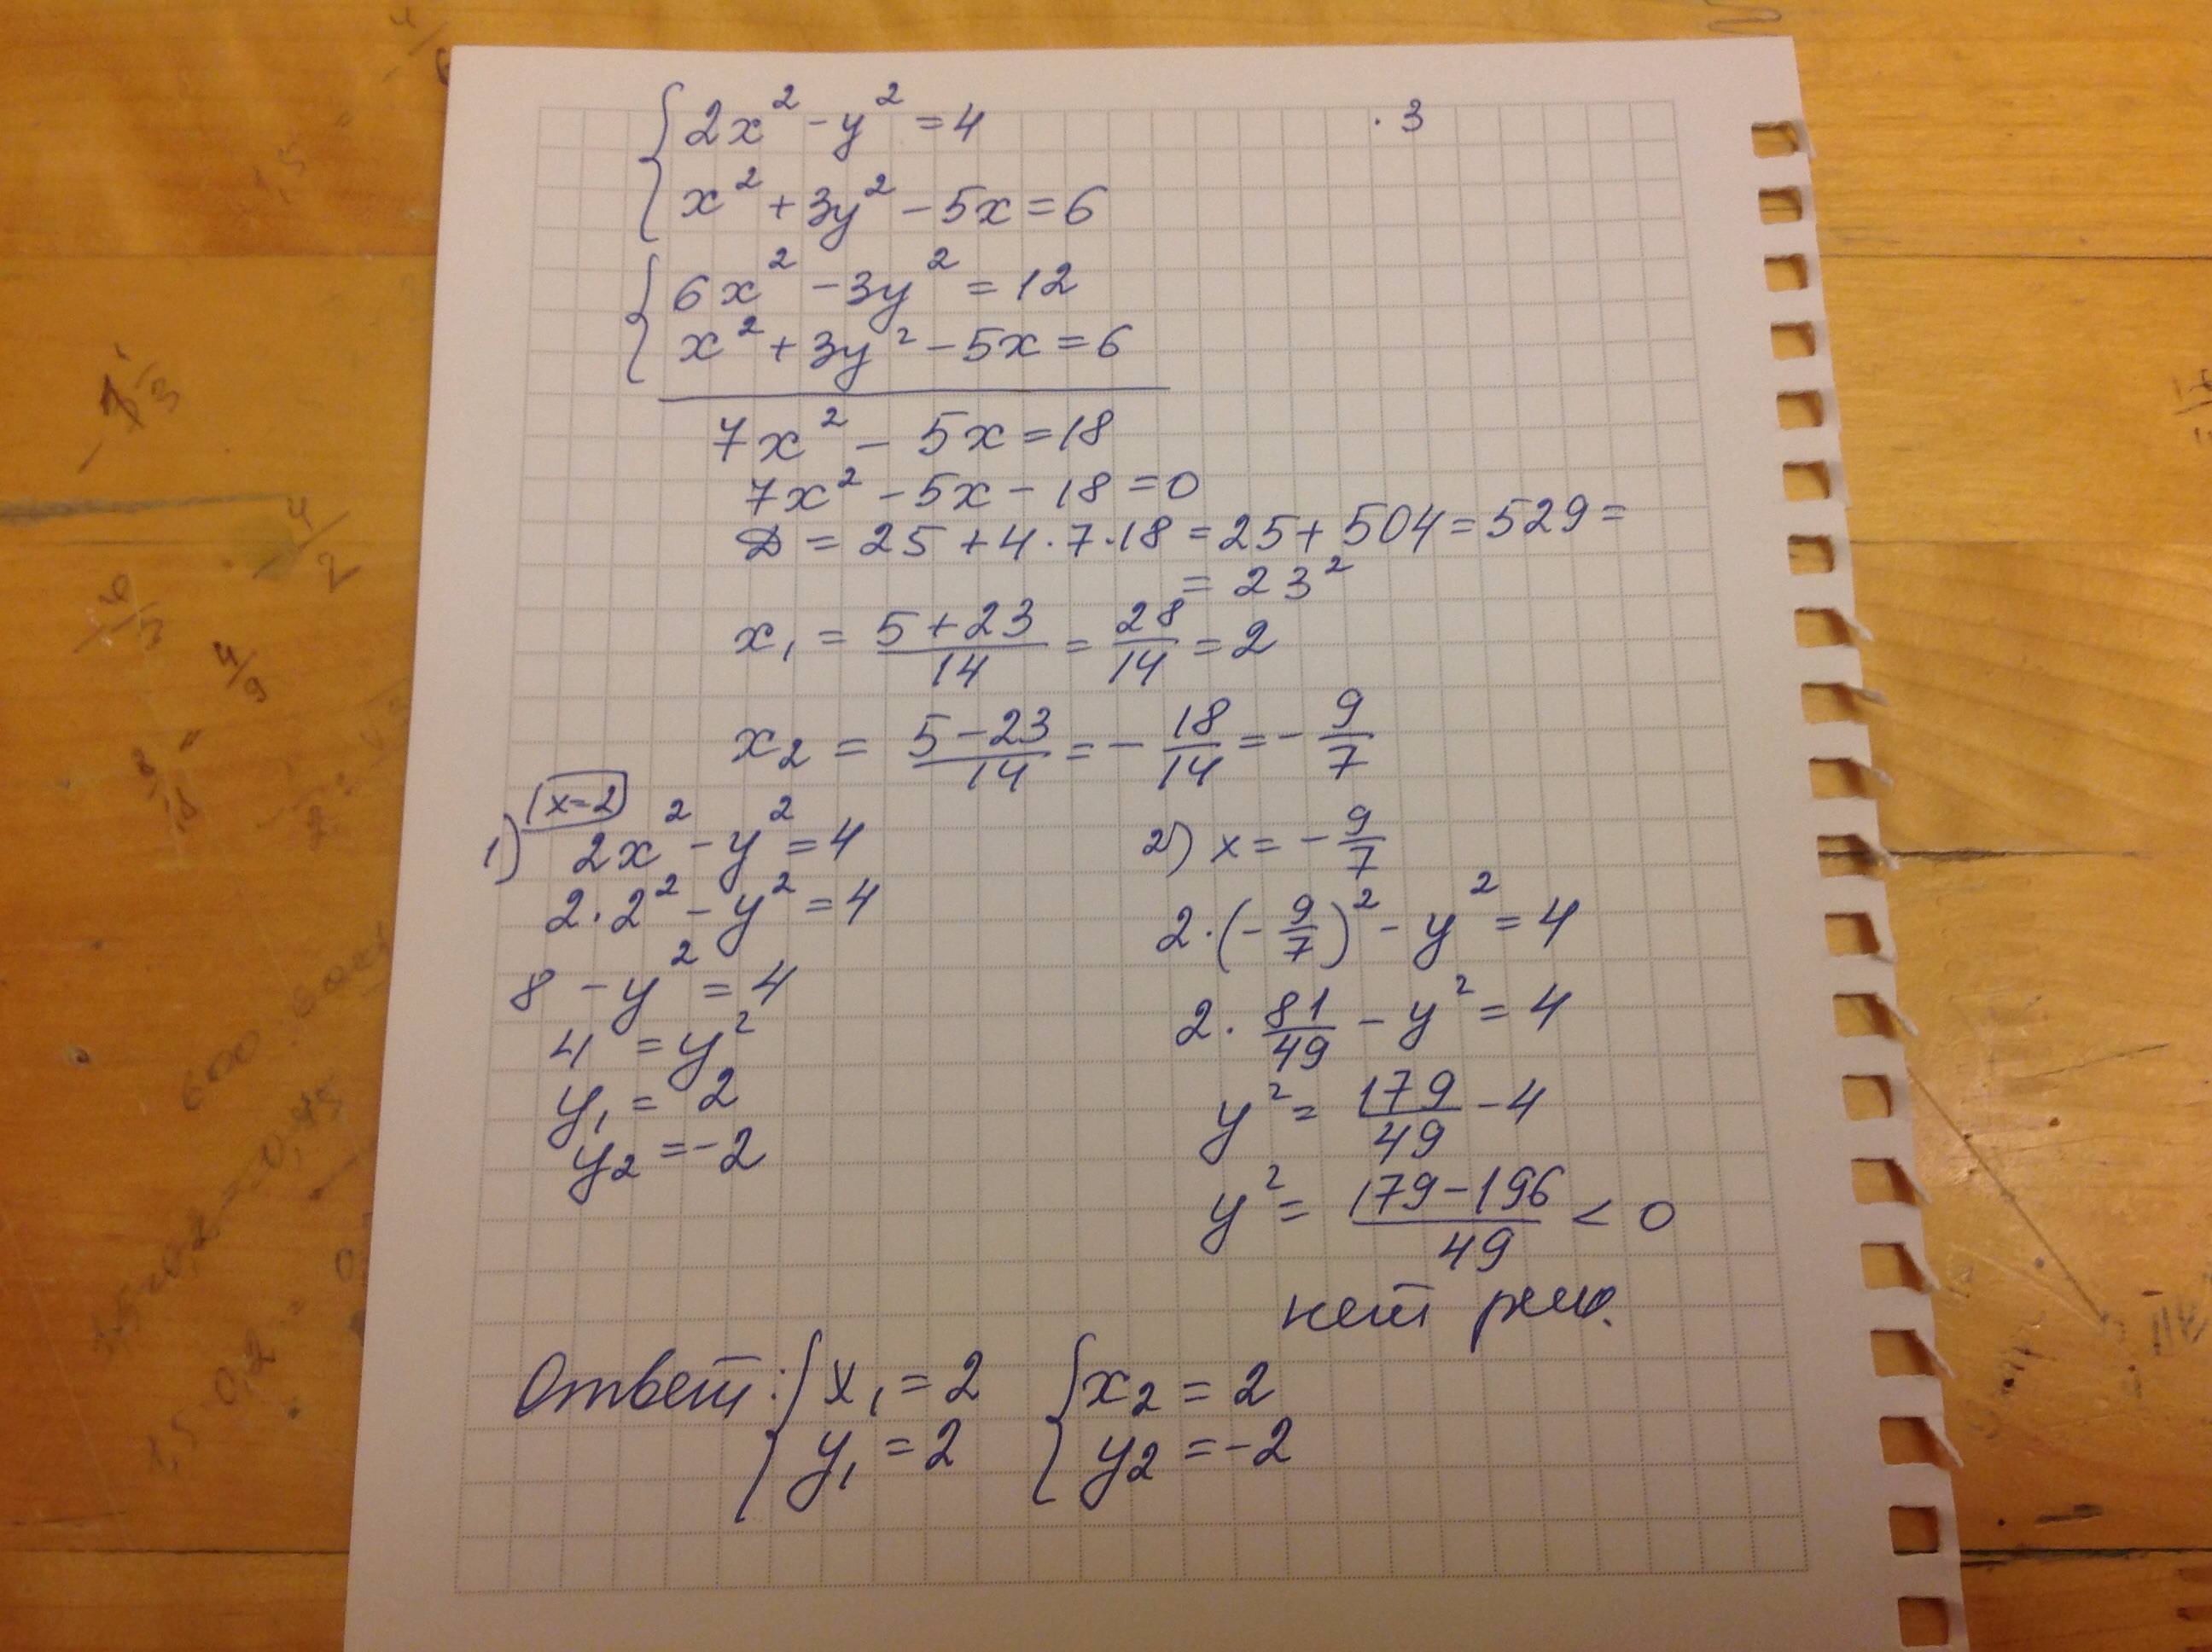 2x² - y² = 4 · 3
x² + 3y² - 5x = 6
6x² - 3y² = 12
x² + 3y² - 5x = 6
7x² - 5x = 18
7x² - 5x - 18 = 0
D = 25 + 4 · 7 · 18 = 25 + 504 = 529 =
= 23²
x₁ = (5 + 23)/14 = 28/14 = 2
x₂ = (5 - 23)/14 = - 18/14 = - 9/7
x = 2
1) 2x² - y² = 4
2 · 2² - y² = 4
8 - y² = 4
4 = y²
y₁ = 2
y₂ = -2
2) x = - 9/7
2 · (- 9/7)² - y² = 4
2 · 81/49 - y² = 4
y² = 179/49 - 4
y² = (179 - 196)/49 < 0
нет реш.
Ответ: { x₁ = 2 { x₂ = 2
y₁ = 2 y₂ = -2